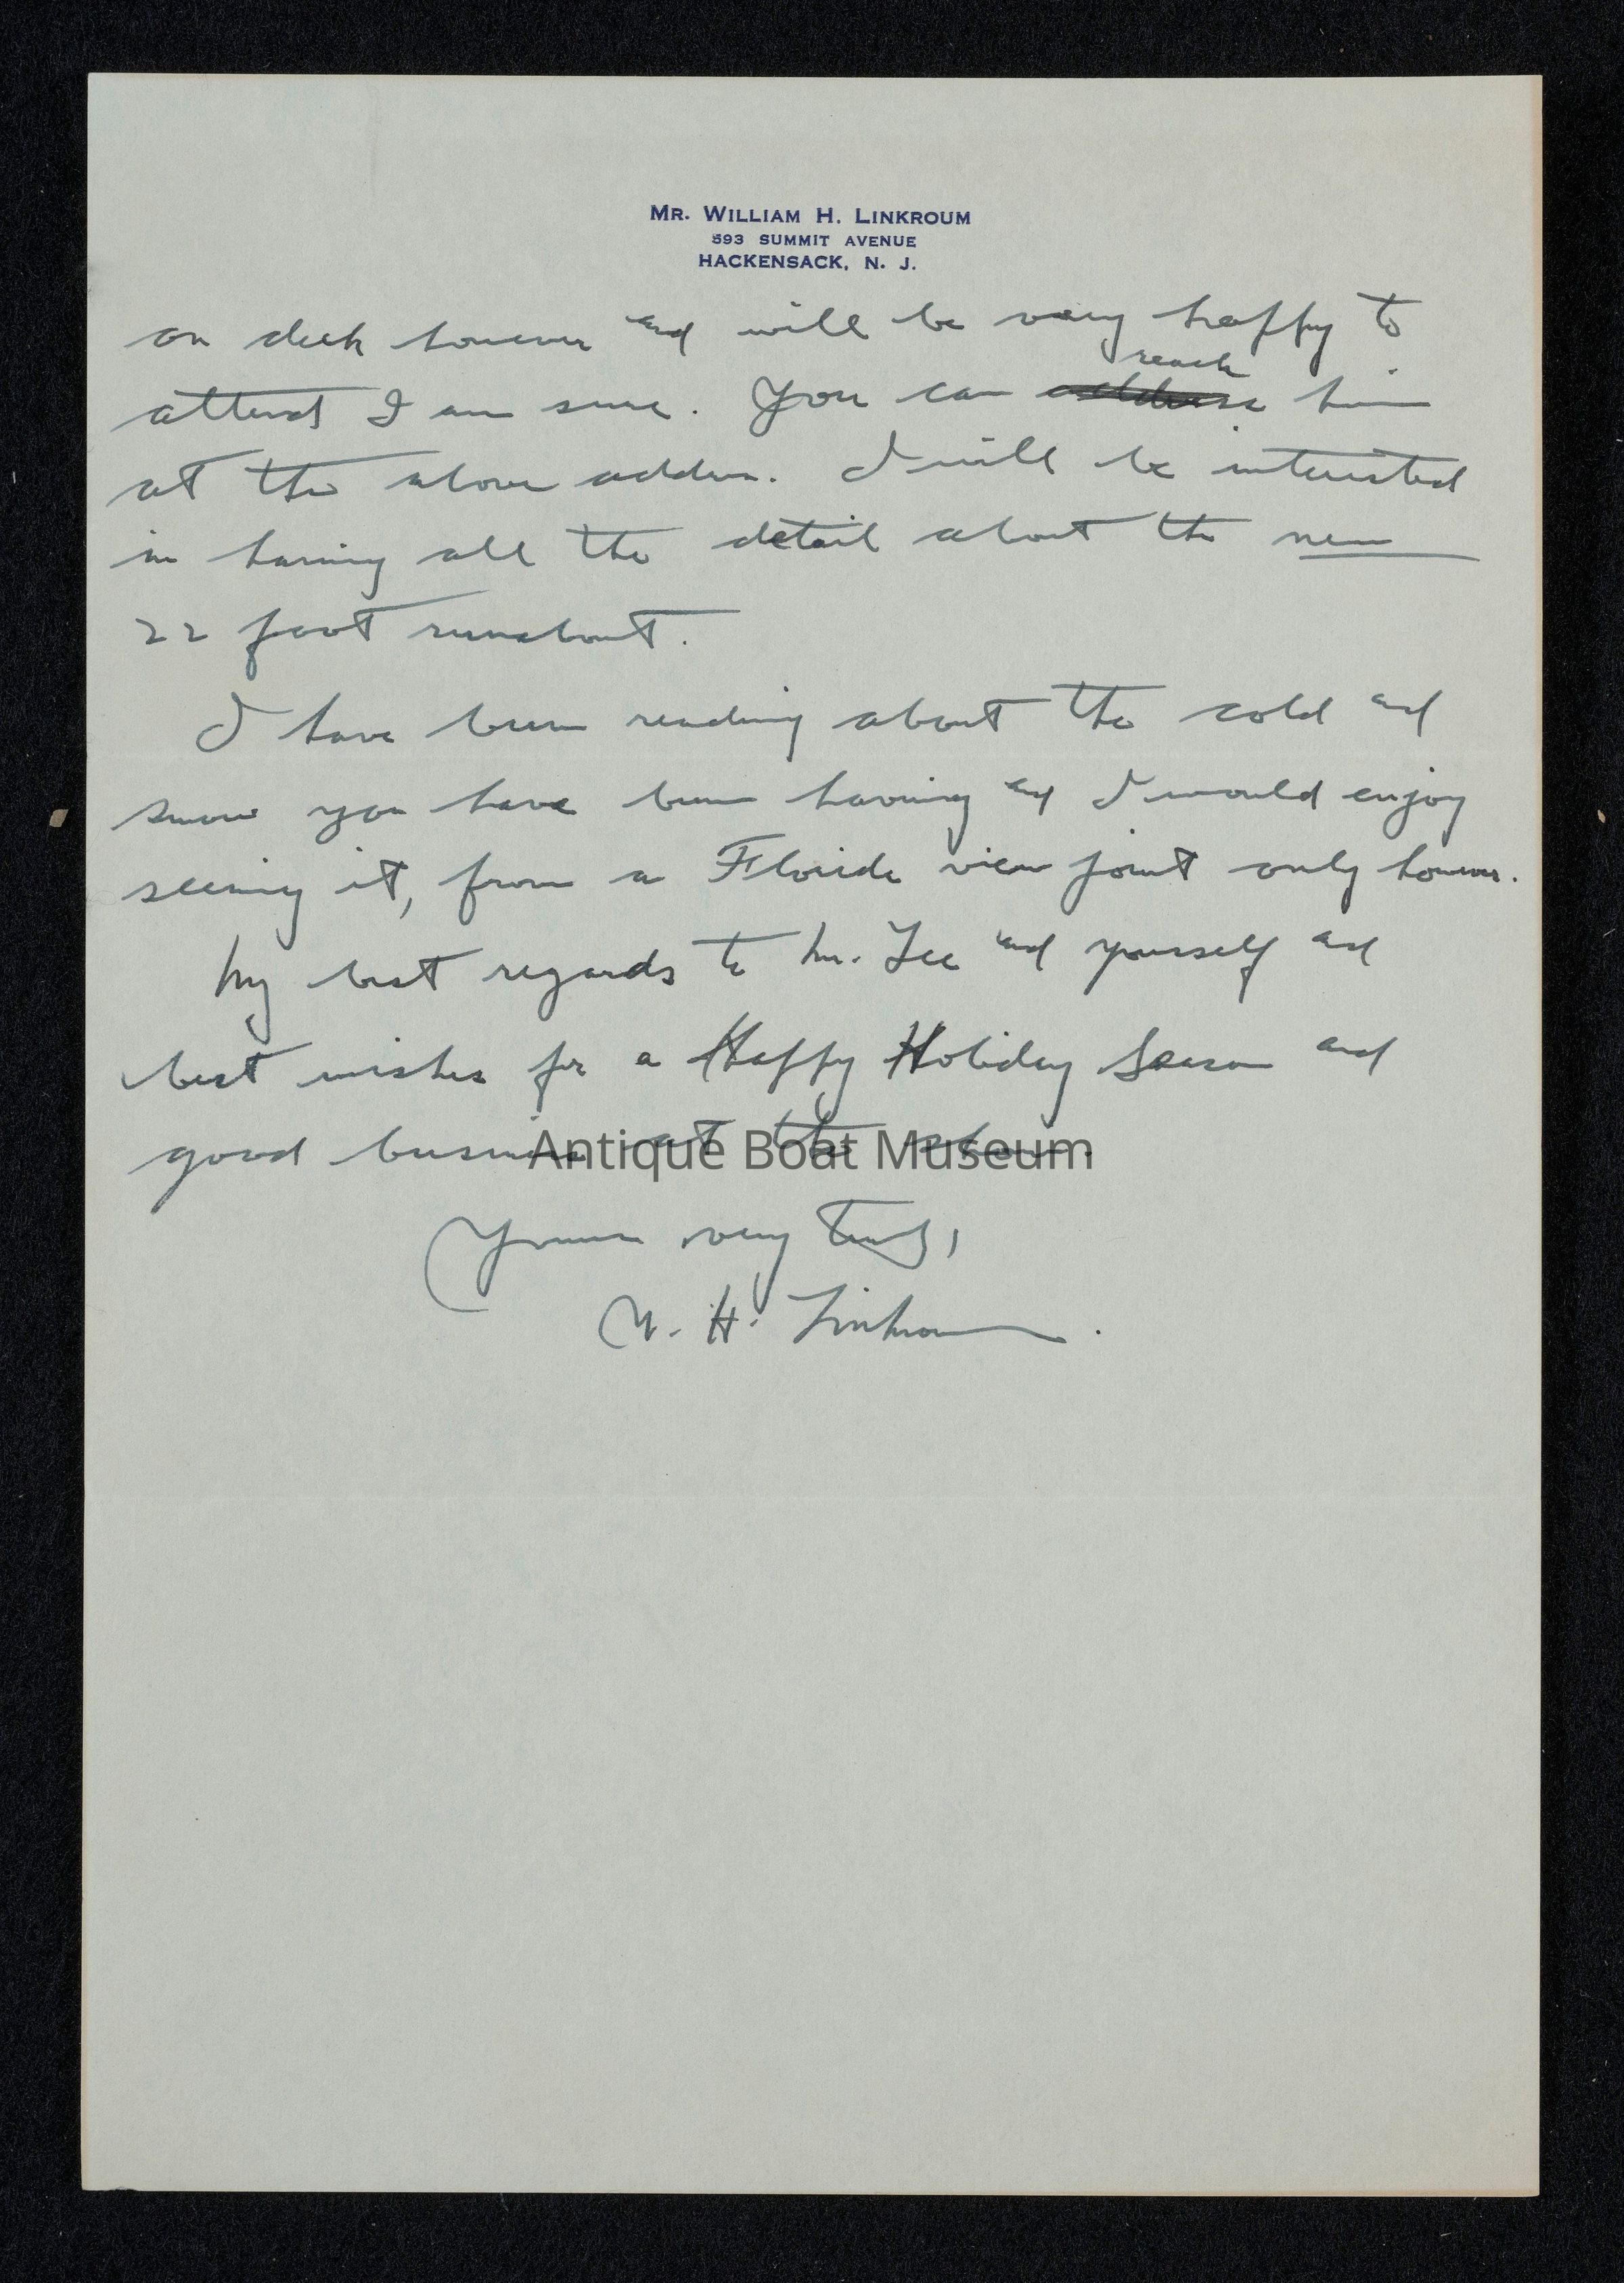 MR. WILLIAM H. LINKROUM
593 SUMMIT AVENUE
HACKENSACK, N. J.
on deck however and will be very happy to
reach
attend I am sure. You can address him
at the above address. I will be interested
in having all the detail about the new
22 foot runabout.
I have been reading about the cold and
snow you have been having and I would enjoy
seeing it, from a Florida view point only however.
My best regards to Mr. Lee and yourself and
best wishes for a Happy Holiday Season and
good business at the show.
Antique Boat Museum
Yours very truly,
W. H. Linkroum.